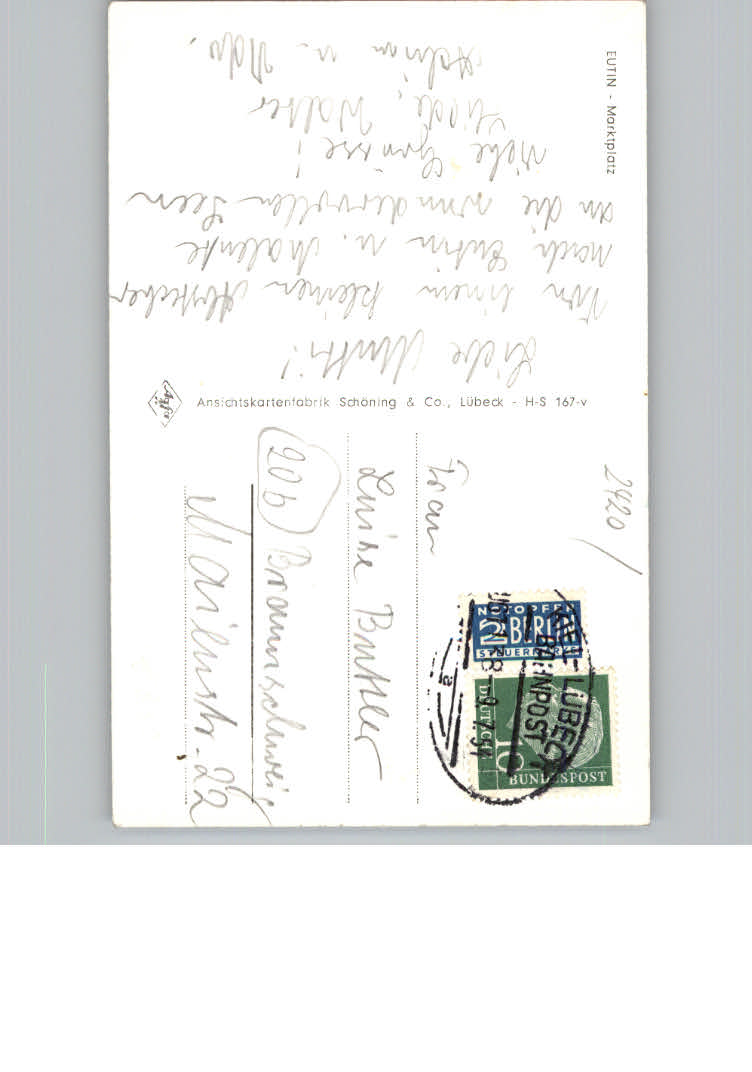 EUTIN - Marktplatz
Liebe Mutti!
Von einem kleinen Abstecher
nach Eutin u. Malente
an die wundervollen Seen
viele Grüsse!
Walter
u.
Ansichtskartenfabrik Schöning & Co., Lübeck - H-S 167-v
Agfa
2420/
NOTOPFER
2 BERLIN
STEUERMARKE
DEUTSCHE
BUNDESPOST
10
KIEL-LÜBECK
BAHNPOST
a
Frau
Luise Buttler
20b Braunschweig